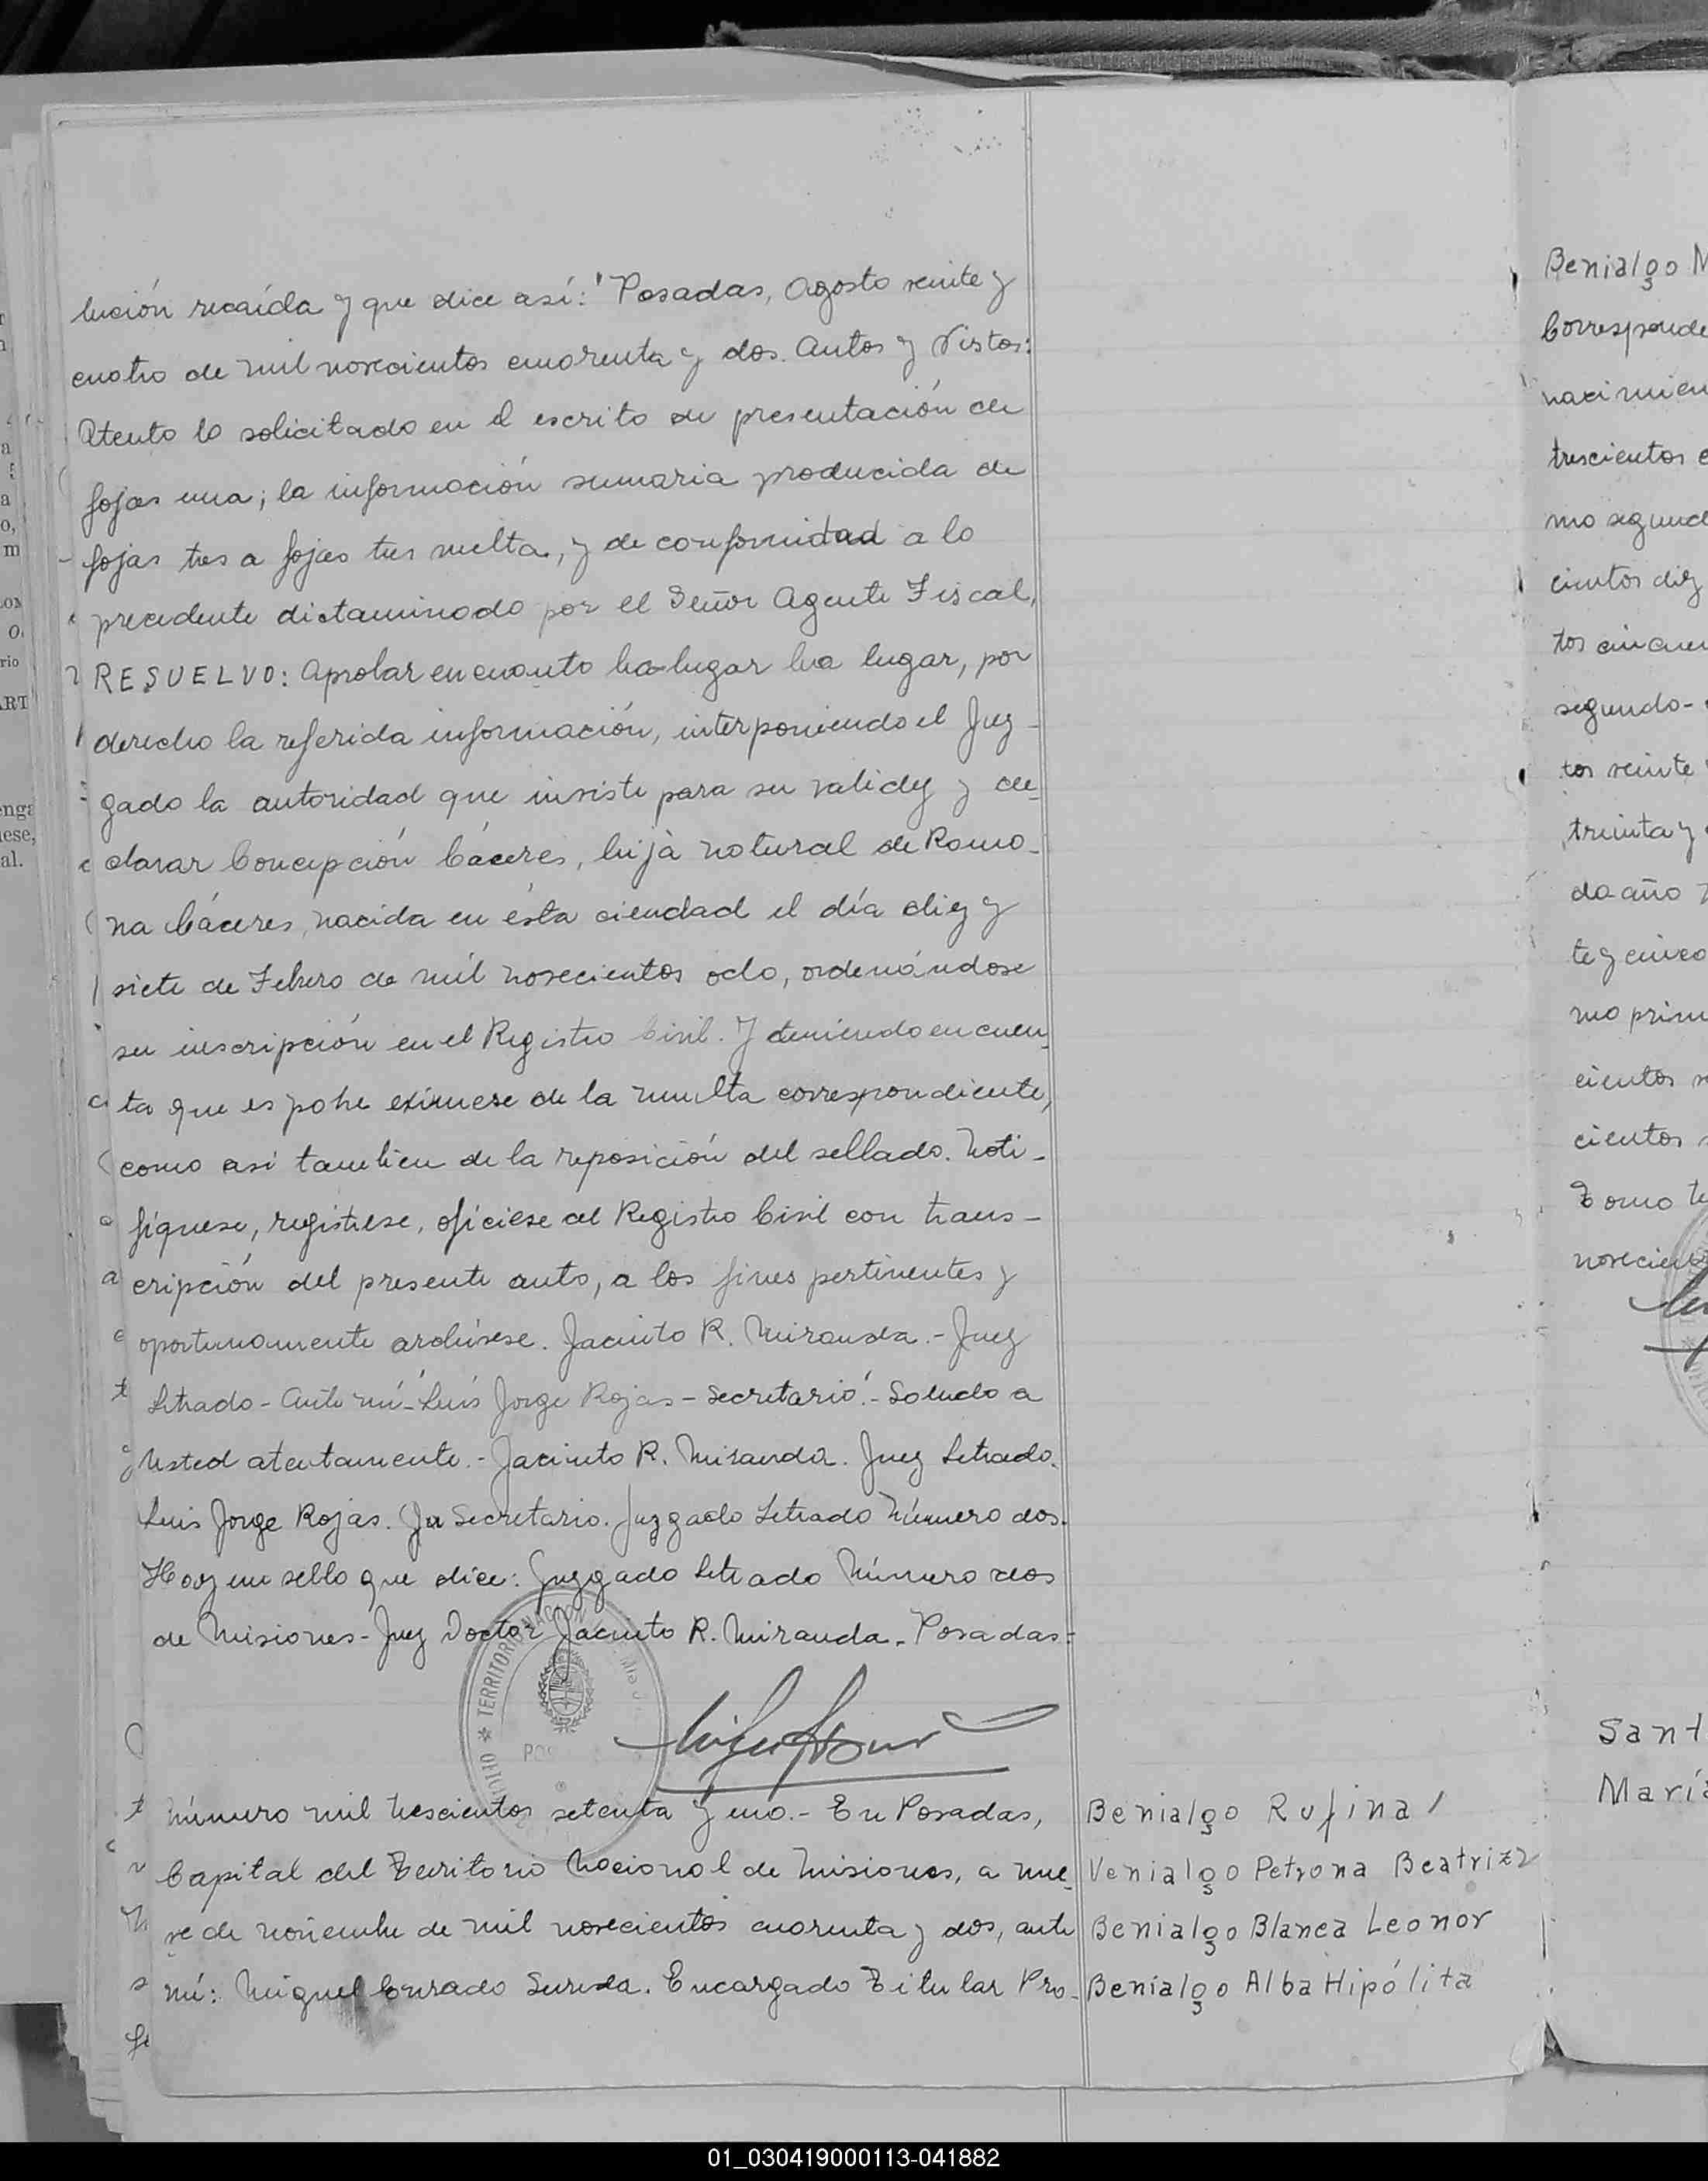 lución recaída y que dice así: "Posadas, Agosto veinte y
cuatro de mil novecientos cuarenta y dos. Autos y Vistos:
Atento lo solicitado en el escrito de presentación de
fojas una; la información sumaria producida de
fojas tres a fojas tres vuelta, y de conformidad a lo
precedente dictaminado por el Señor Agente Fiscal,
RESUELVO: Aprobar en cuanto ha lugar ha lugar, por
derecho la referida información, interponiendo el Juz-
gado la autoridad que inviste para su validez y de-
clarar Concepción Cáceres, hija natural de Ramo-
na Cáceres, nacida en ésta ciudad el día diez y
siete de Febrero de mil novecientos ocho, ordenándose
su inscripción en el Registro Civil. Y teniendo en cuen-
ta que es pobre exímese de la multa correspondiente,
como así tambien de la reposición del sellado. Noti-
fíquese, regístrese, ofíciese al Registro Civil con trans-
cripción del presente auto, a los fines pertinentes y
oportunamente archívese. Jacinto R. Miranda.- Juez
Letrado- Ante mí- Luís Jorge Rojas- Secretario".- Saludo a
Usted atentamente.- Jacinto R. Miranda. Juez Letrado.
Luis Jorge Rojas. Secretario. Juzgado Letrado Número dos.
Hay un sello que dice: Juzgado Letrado Número dos
de Misiones- Juez Doctor Jacinto R. Miranda. Posadas:
TERRITORIO NACION
Número mil trescientos setenta y uno.- En Posadas,
Capital del Territorio Nacional de Misiones, a nue-
ve de noviembre de mil novecientos cuarenta y dos, ante
mí: Miguel Conrado Sureda. Encargado Titular Pro-
Benialgo Rufina
Venialgo Petrona Beatriz
Benialgo Blanca Leonor
Benialgo Alba Hipólita
Benialgo
Corresponde
nacimien
trescientos
mo segund
cientos diez
tos cincuen
segundo-
tos veinte
treinta y
do año
te y cinco
mo prim
cientos
cientos
Tomo
novecien
Sant
María
01_030419000113-041882